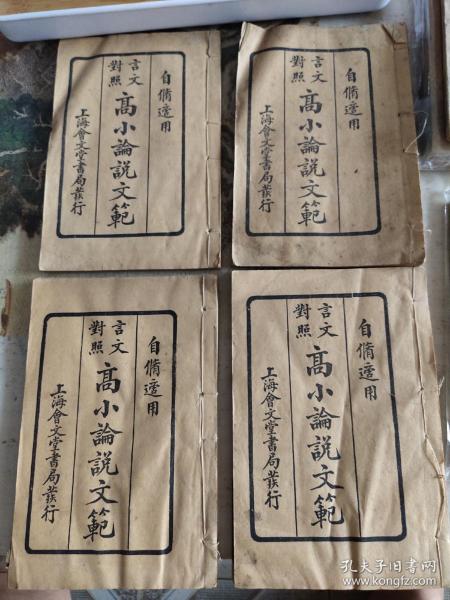 自脩適用
言文對照
高小論說文範
上海會文堂書局發行
自脩適用
言文對照
高小論說文範
上海會文堂書局發行
自脩適用
言文對照
高小論說文範
上海會文堂書局發行
自脩適用
言文對照
高小論說文範
上海會文堂書局發行
孔夫子旧书网
www.kongfz.com